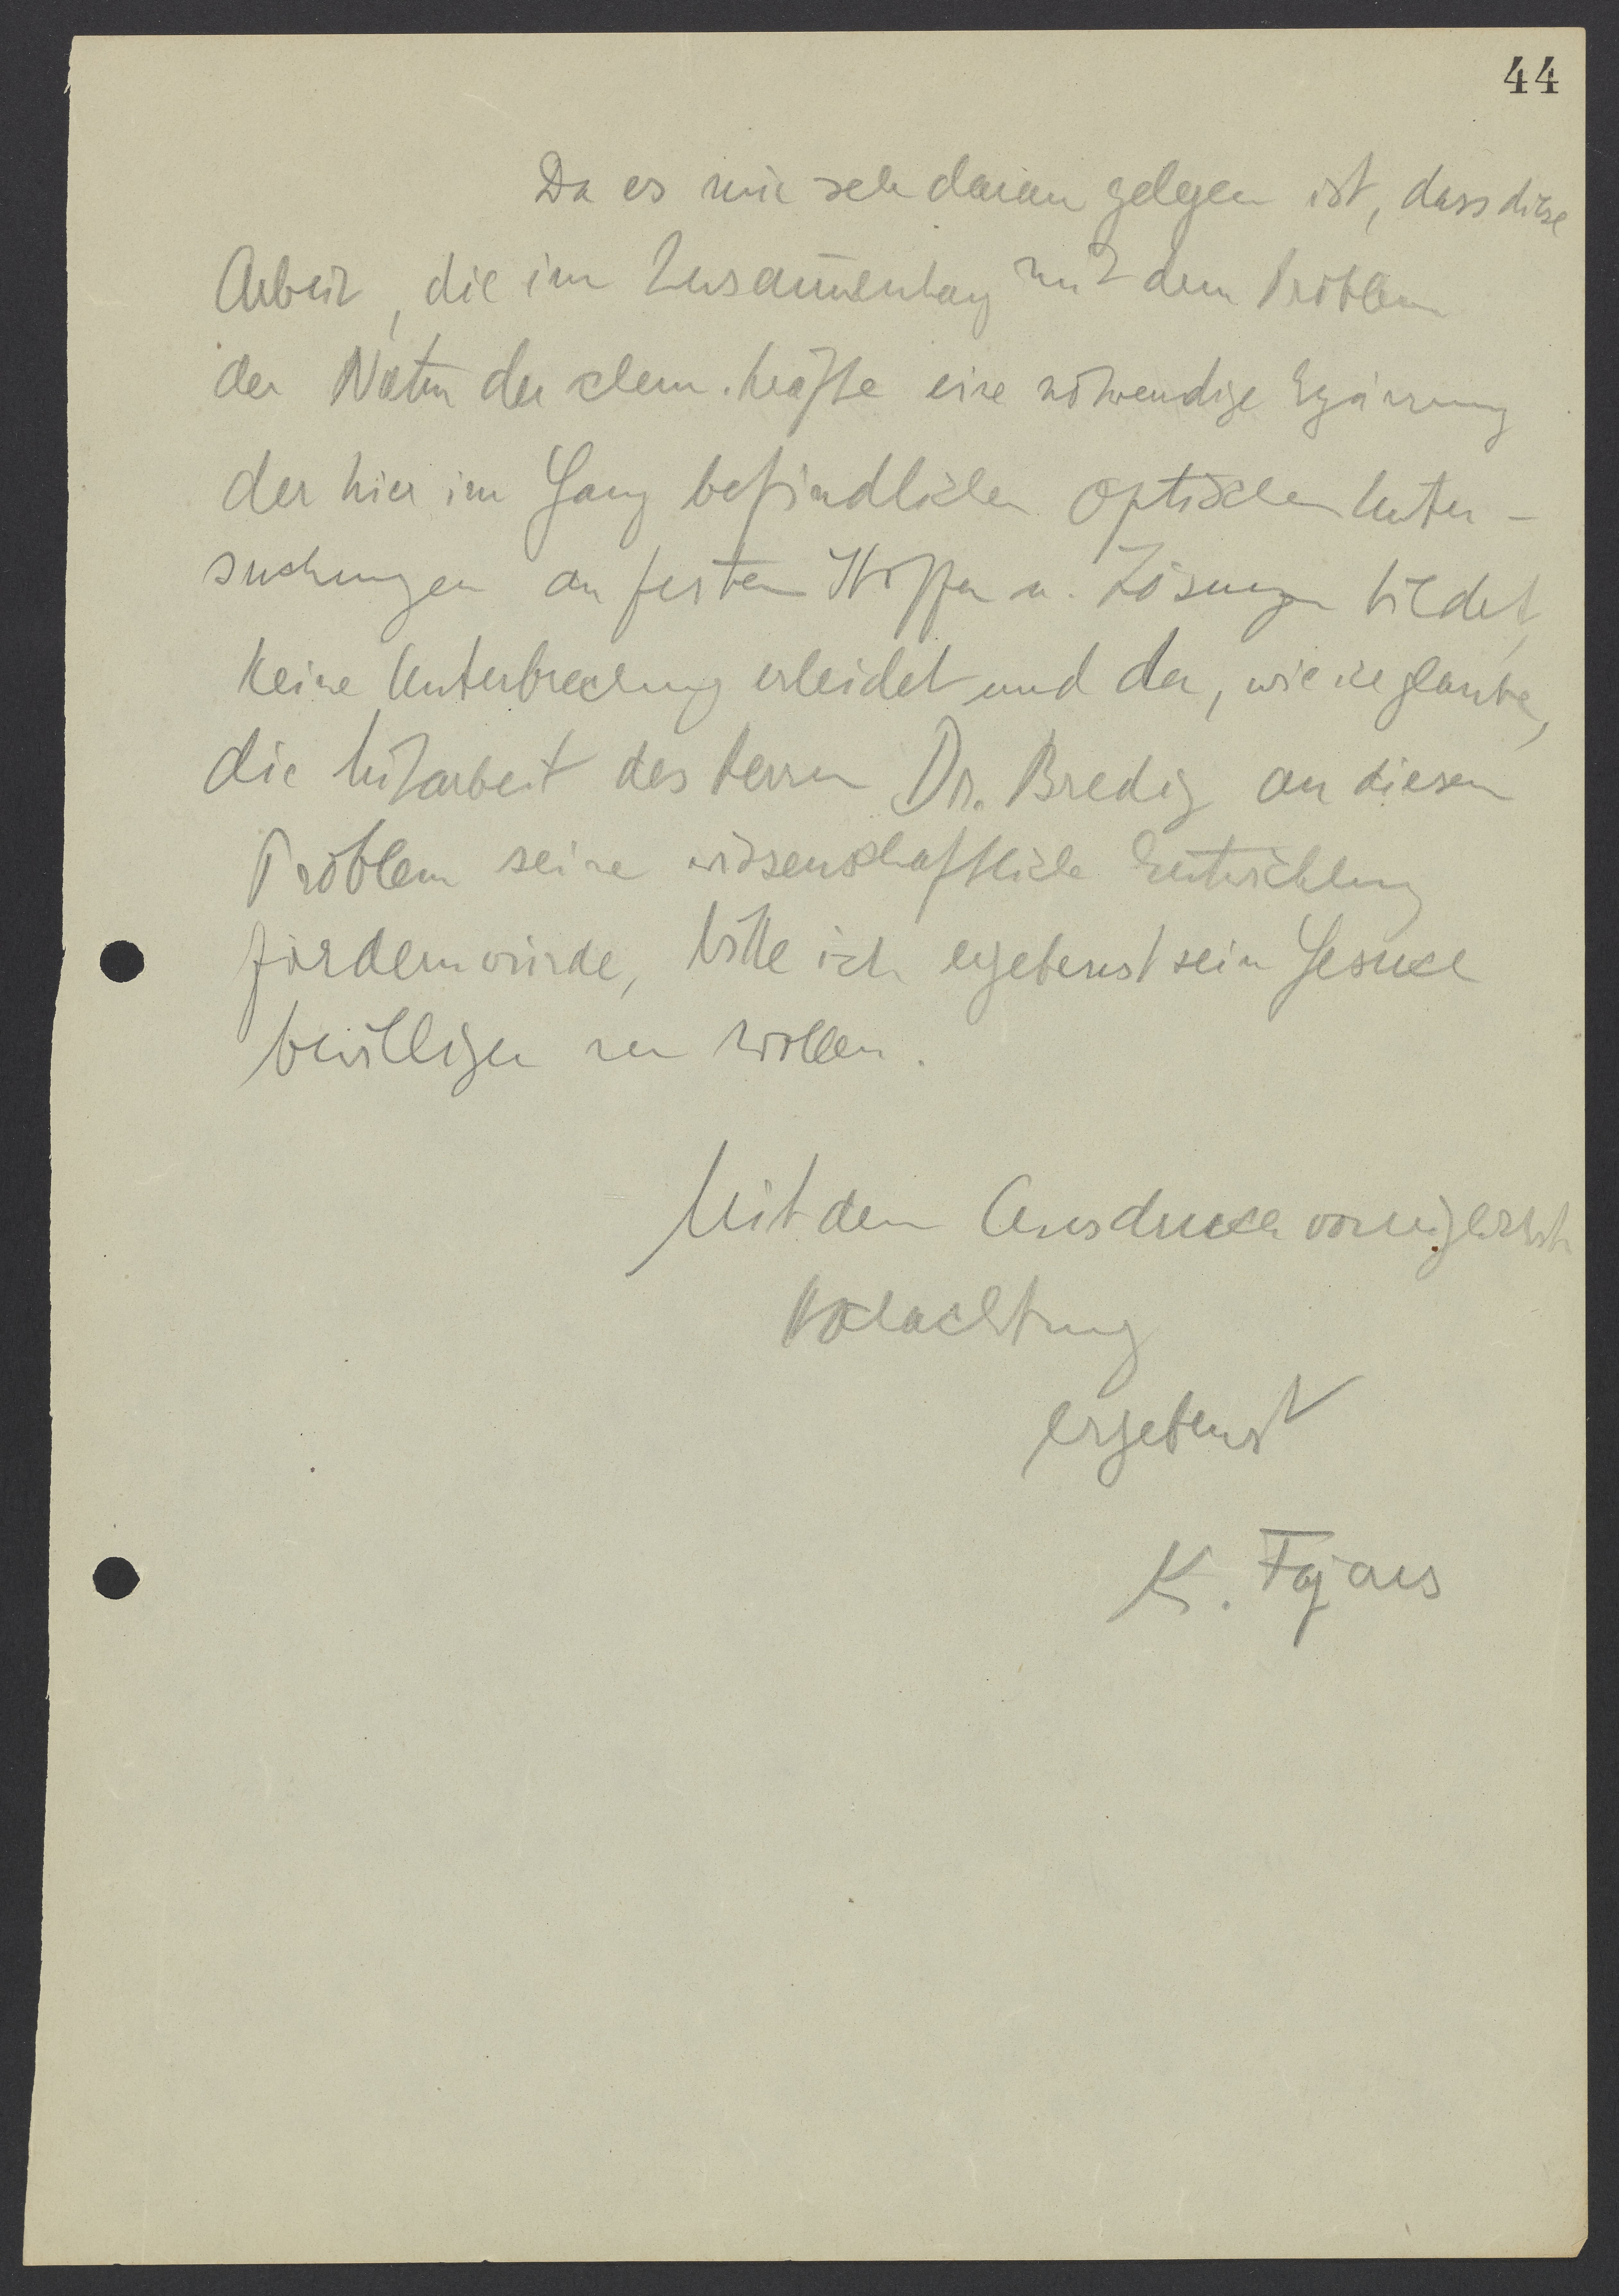 44
Da es mir sehr daran gelegen ist, dass diese
Arbeit, die im Zusam̅enhang mit dem Problem
der Natur der chem. Kräfte eine notwendige Ergänzung
der hier im Gang befindlichen optischen Unter-
suchungen an festen Stoffen u. Lösungen bildet,
keine Unterbrechung erleidet und da, wie ich glaube,
die Mitarbeit des Herrn Dr. Bredig an diesem
Problem seine wissenschaftliche Entwicklung
fördern würde, bitte ich ergebenst sein Gesuch
bewilligen zu wollen.
Mit dem Ausdruck vorzüglichster
Hochachtung
ergebenst
K. Fajans